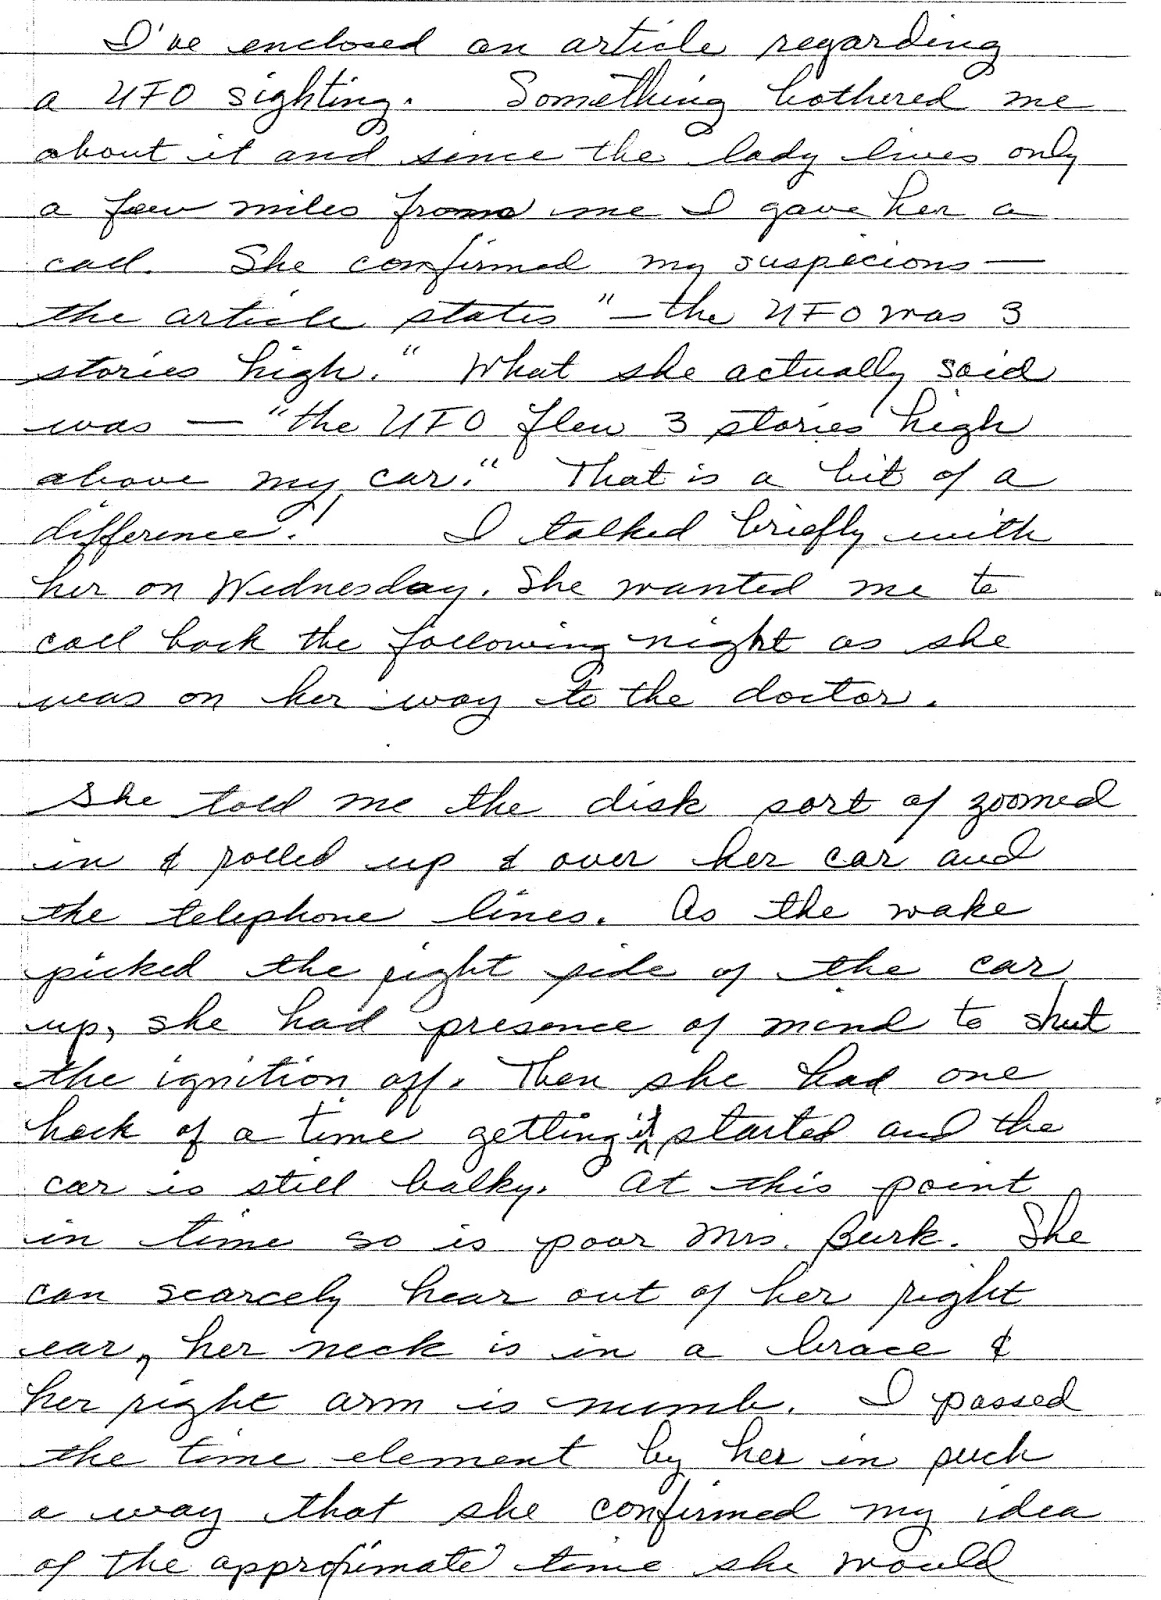 I've enclosed an article regarding
a UFO sighting. Something bothered me
about it and since the lady lives only
a few miles from me I gave her a
call. She confirmed my suspicions —
the article states "— the UFO was 3
stories high." What she actually said
was — "the UFO flew 3 stories high
above my car." That is a bit of a
difference! I talked briefly with
her on Wednesday. She wanted me to
call back the following night as she
was on her way to the doctor.
She told me the disk sort of zoomed
in & rolled up & over her car and
the telephone lines. As the wake
picked the right side of the car
up, she had presence of mind to shut
the ignition off. Then she had one
heck of a time getting it started and the
car is still balky. At this point
in time so is poor Mrs. Burk. She
can scarcely hear out of her right
ear, her neck is in a brace &
her right arm is numb. I passed
the time element by her in such
a way that she confirmed my idea
of the approximate time she would